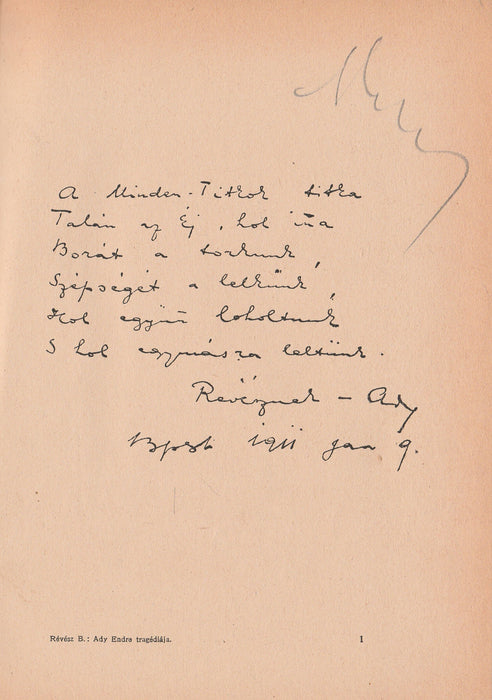 A Minden-Titkok titka
Talán az Éj, hol itta
Borát a torkunk,
Szépségét a lelkünk,
Hol együtt loholtunk
S hol egymásra leltünk.
Révésznek – Ady
Bpest 1911 jan 9.
Révész B.: Ady Endre tragédiája.
1